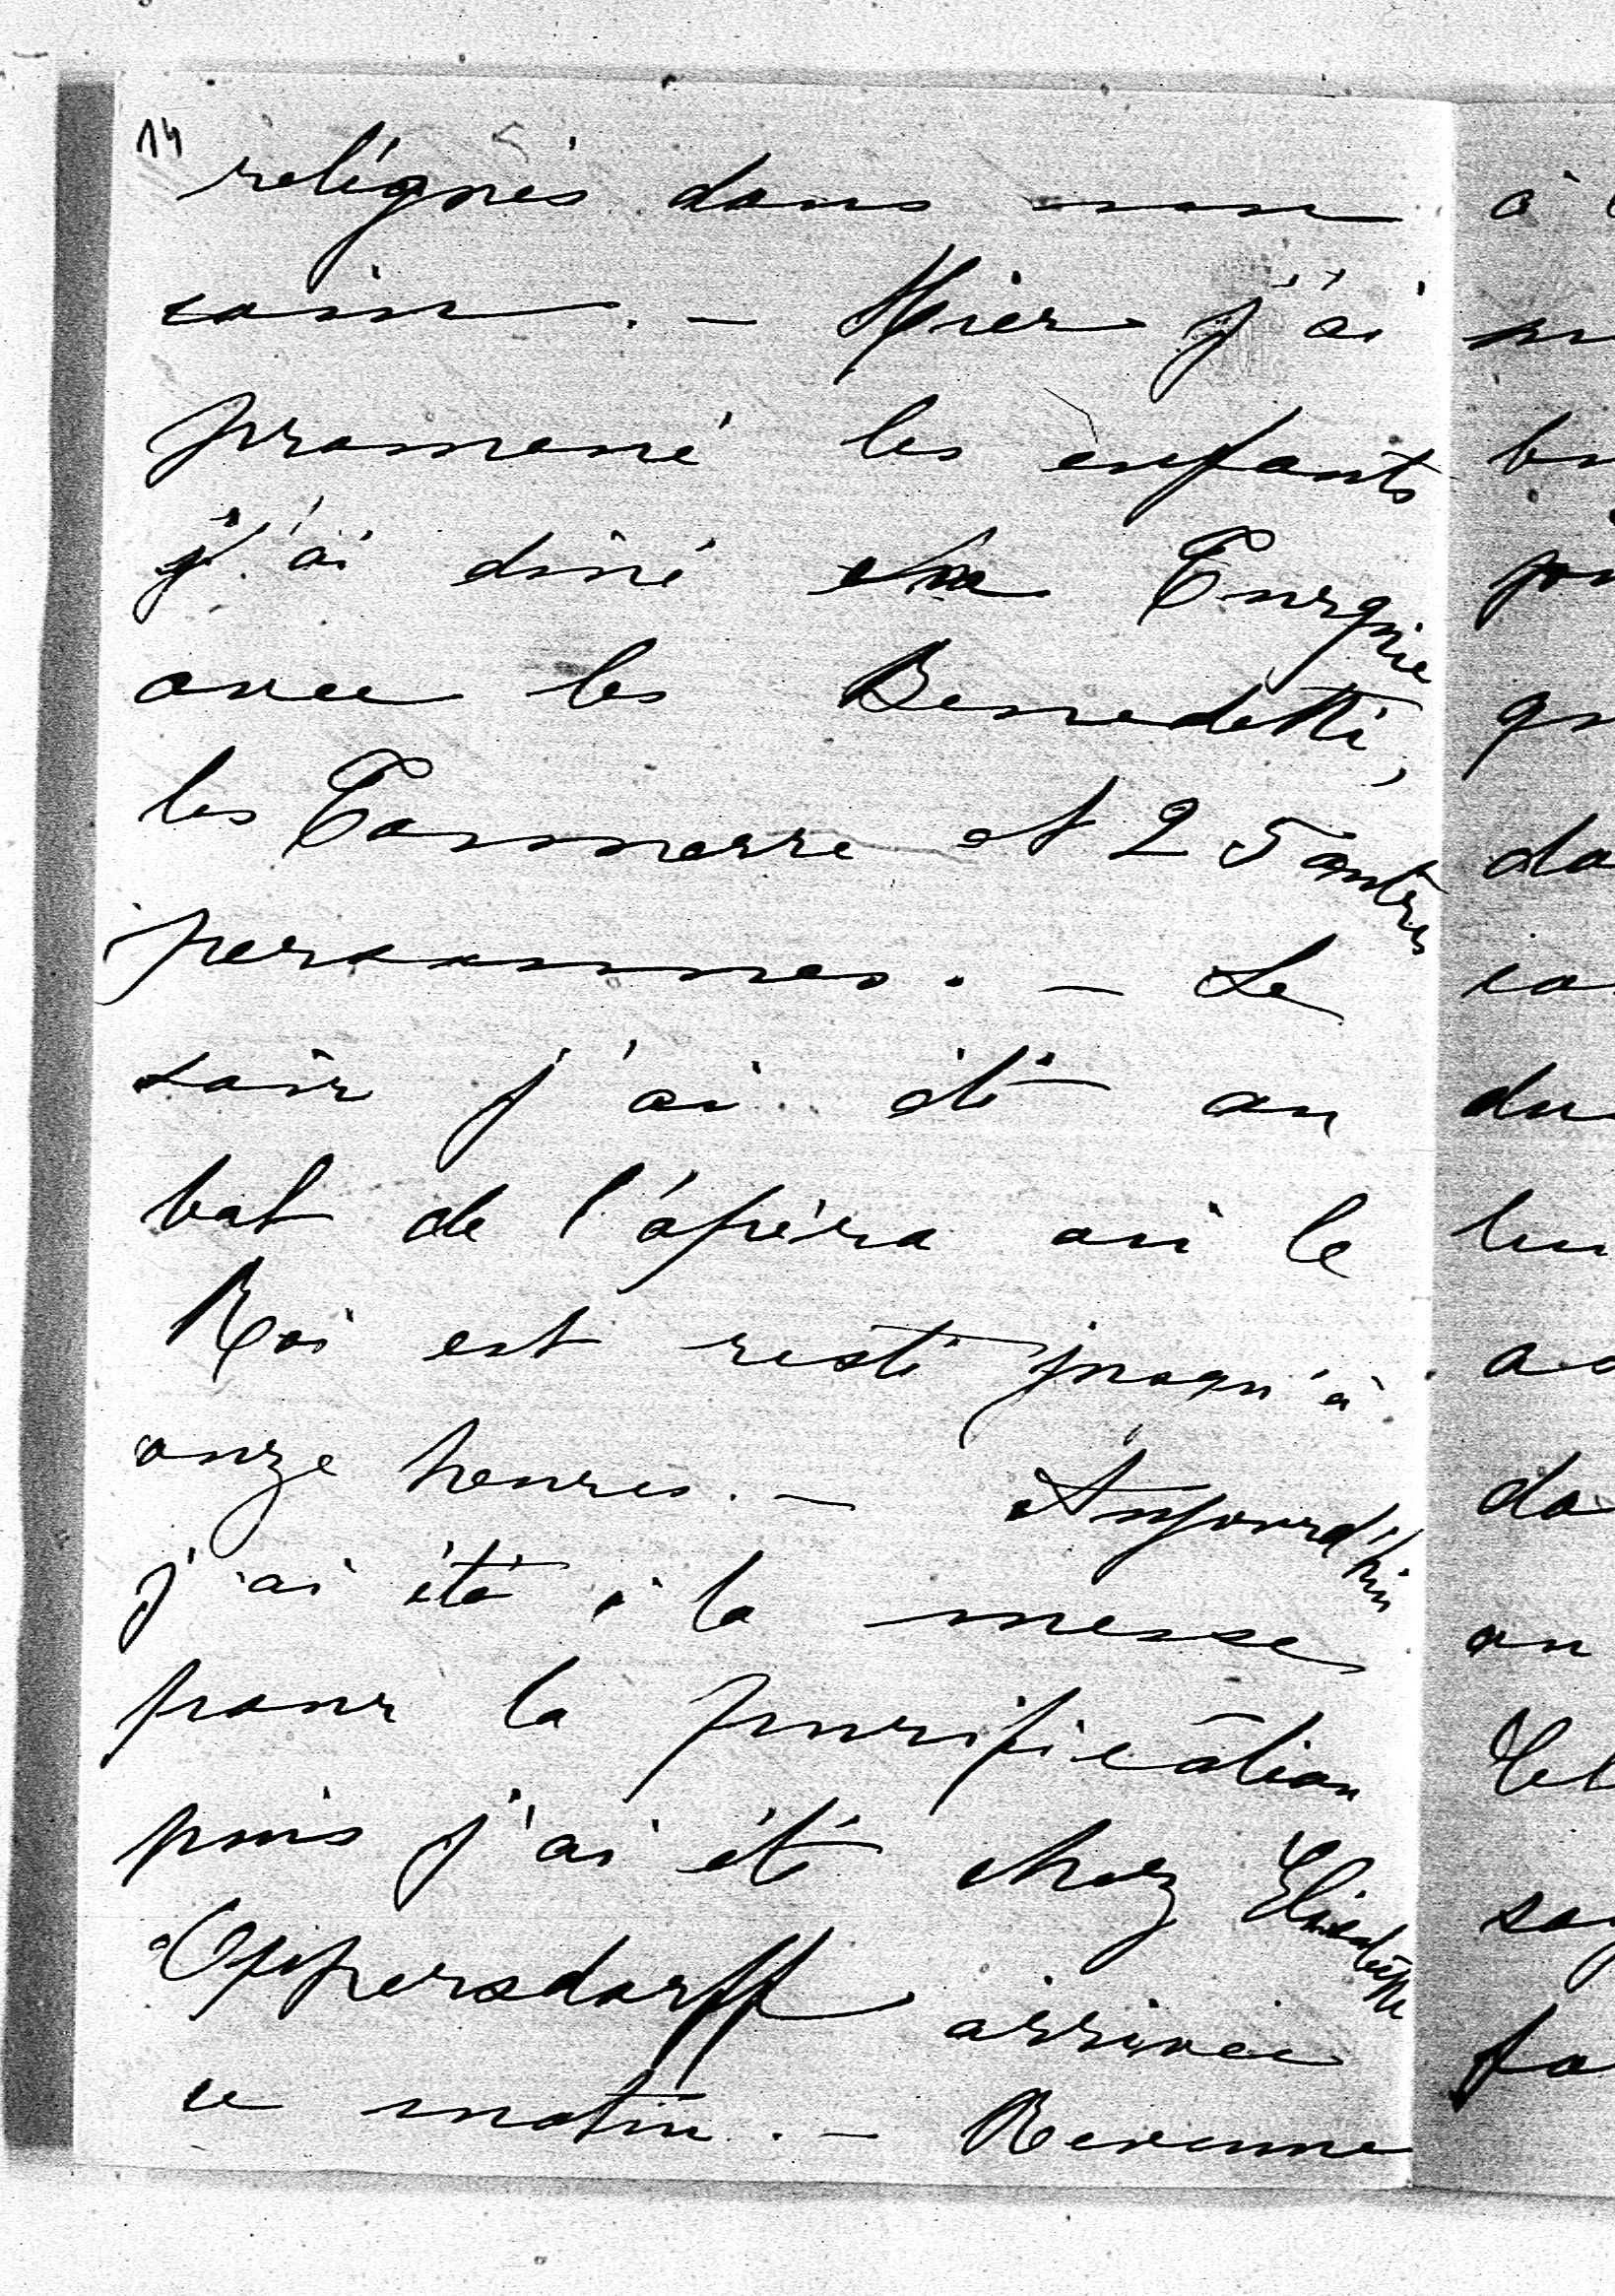 14
relégués dans un
coin. – Hier j'ai
promené les enfants
j'ai diné en Turquie
avec les Benedetti,
les Tonnerre et 25 autres
personnes. – Le
soir j'ai été au
bal de l'opéra où le
Roi est resté jusqu'à
onze heures. – Aujourd'hui
j'ai été à la messe
pour la purification
puis j'ai été chez Elisabeth
Oppersdorff arrivée
ce matin. – Revenue